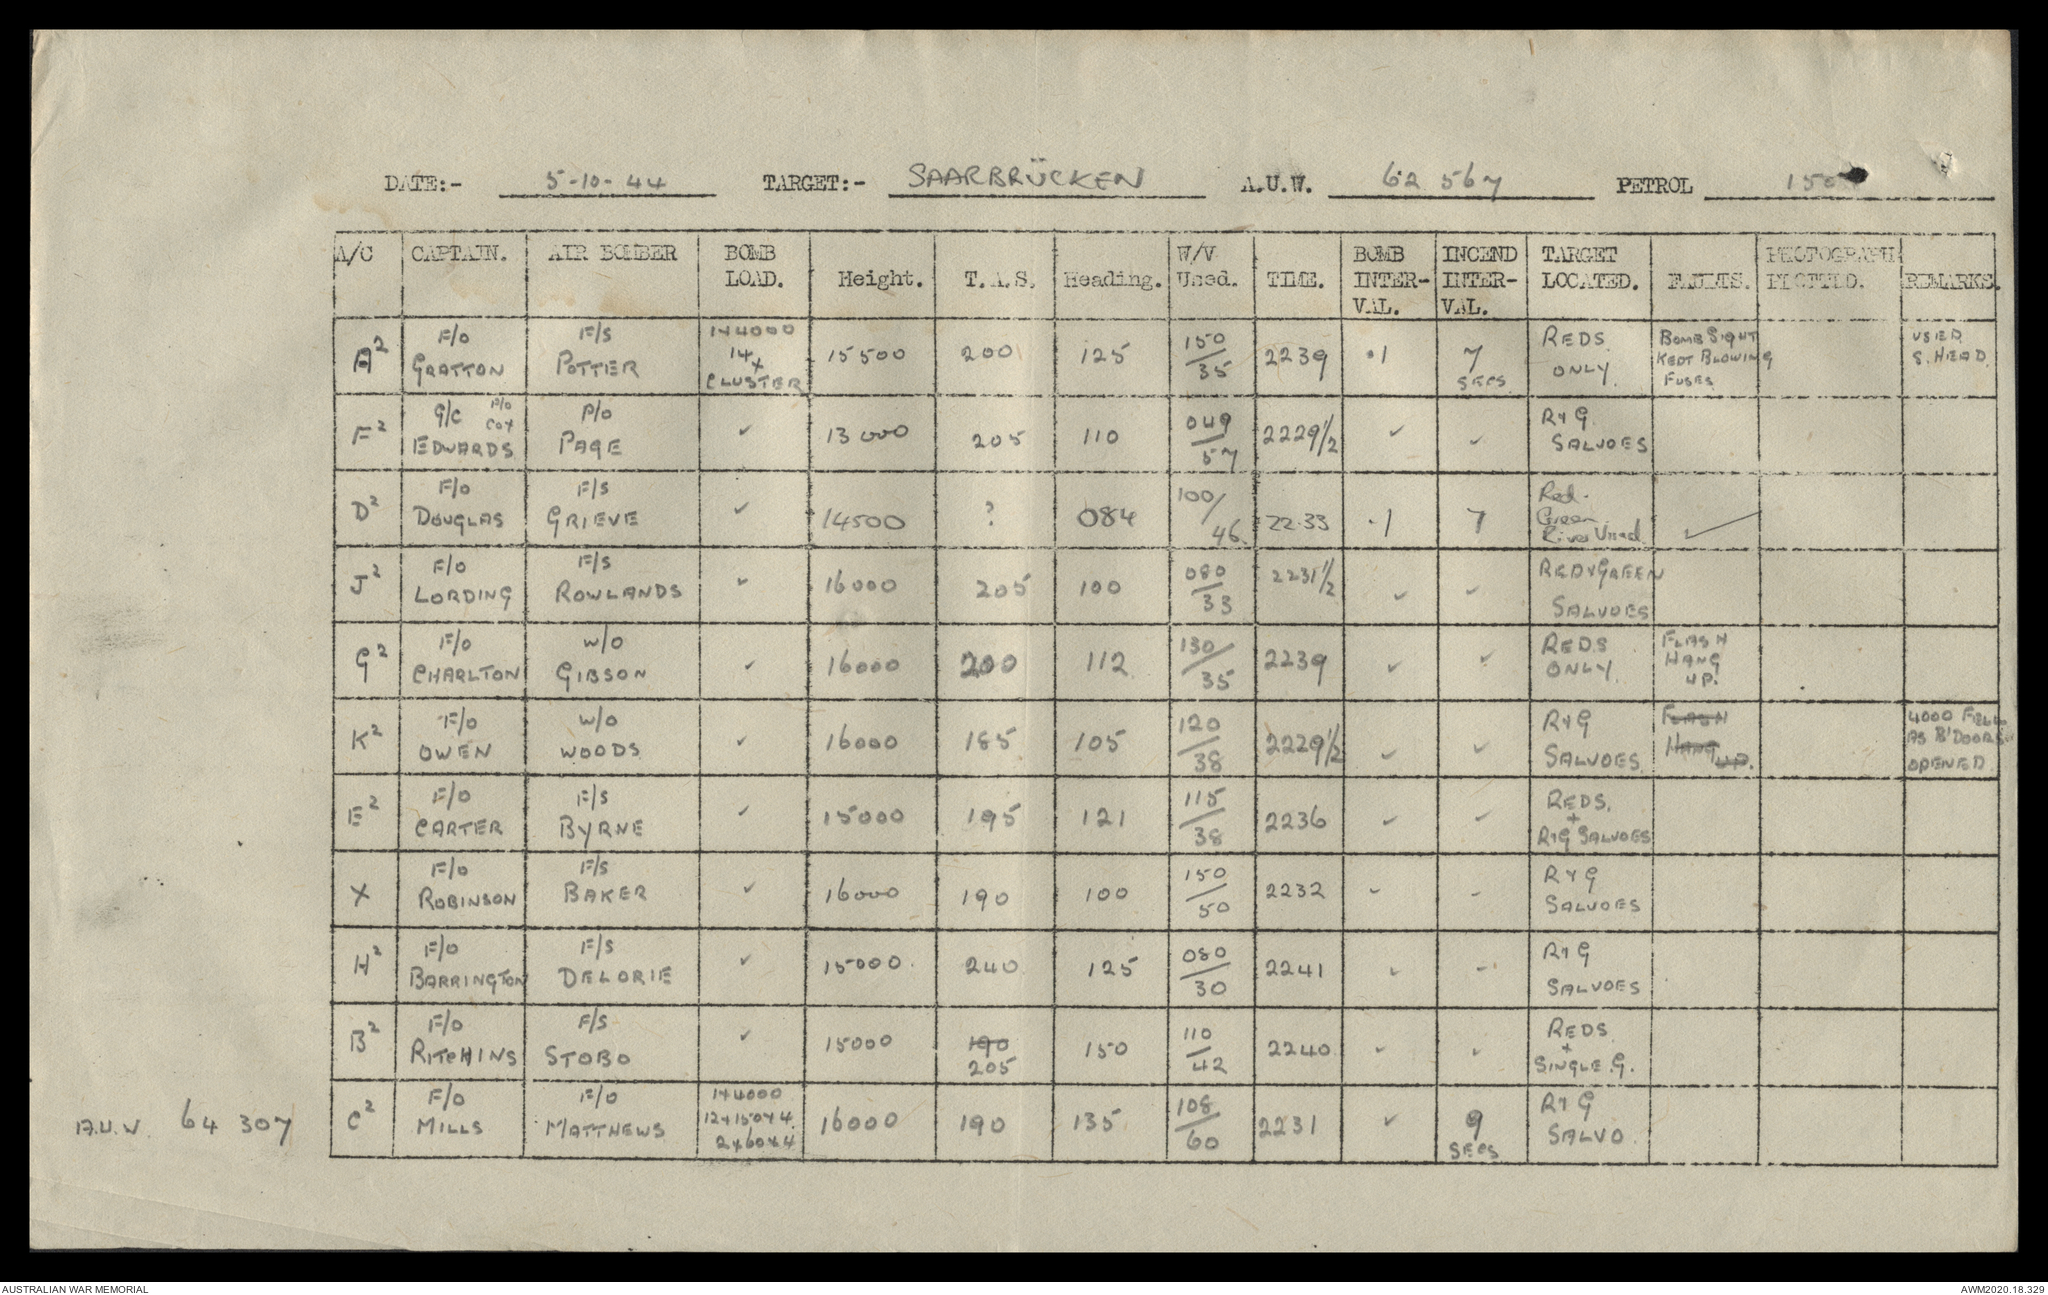 DATE:- 5-10-44 TARGET:- SAARBRÜCKEN A.U.W. 62 567 PETROL
A/C CAPTAIN. AIR BOMBER BOMB LOAD. Height. T.A.S. Heading. W/V Used. TIME. BOMB INTER-VAL. INCEND INTER-VAL. TARGET LOCATED. FAULTS. PHOTOGRAPH PLOTTED. REMARKS.
A² F/O GRATTON F/S POTTER 1x4000 14x CLUSTER 15500 200 125 150/35 2239 .1 7 SECS REDS ONLY. BOMB SIGHT KEPT BLOWING FUSES USED S. HEAD
F² G/C P/O COX EDWARDS P/O PAGE ✓ 13000 205 110 049/57 2229½ ✓ ✓ R+G SALVOES
D² F/O DOUGLAS F/S GRIEVE ✓ 14500 ? 084 100/46 22.33 .1 7 Red. Green River Visad ✓
J² F/O LORDING F/S ROWLANDS ✓ 16000 205 100 080/33 2231½ ✓ ✓ RED+GREEN SALVOES
G² F/O CHARLTON W/O GIBSON ✓ 16000 200 112 130/35 2239 ✓ ✓ REDS ONLY. FLASH HANG UP.
K² F/O OWEN W/O WOODS ✓ 16000 185 105 120/38 2229½ ✓ ✓ R+G SALVOES FLASH HANG UP. 4000 FELL AS B'DOORS OPENED
E² F/O CARTER F/S BYRNE ✓ 15000 195 121 115/38 2236 ✓ ✓ REDS. + R+G SALVOES
X F/O ROBINSON F/S BAKER ✓ 16000 190 100 150/50 2232 ✓ ✓ R+G SALVOES
H² F/O BARRINGTON F/S DELORIE ✓ 15000 240 125 080/30 2241 ✓ ✓ R+G SALVOES
B² F/O RITCHINS F/S STOBO ✓ 15000 190 205 150 110/42 2240 ✓ ✓ REDS + SINGLE.G.
A.U.W. 64 307 C² F/O MILLS F/O MATTHEWS 1x4000 12x150x4 2x60x4 16000 190 135 108/60 2231 ✓ 9 SECS R+G SALVO.
AUSTRALIAN WAR MEMORIAL AWM2020.18.329